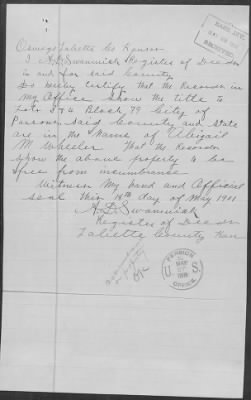 Oswego Labette Co Kansas
I A. D. Swanwick Register of Deeds
in and for said County
Do hereby certify that the Records in
my Office Show the title to
Lots 3 & 4 Block 79 City of
Parsons said County and State
are in the Name of Abigail
M Wheeler That the Records
show the above property to be
free from incumbrance
Witness My hand and Official
seal this 18th day of May 1901
A. D. Swanwick
Register of Deeds
Labette County Kan
PENSION
U S
MAY
OFFICE